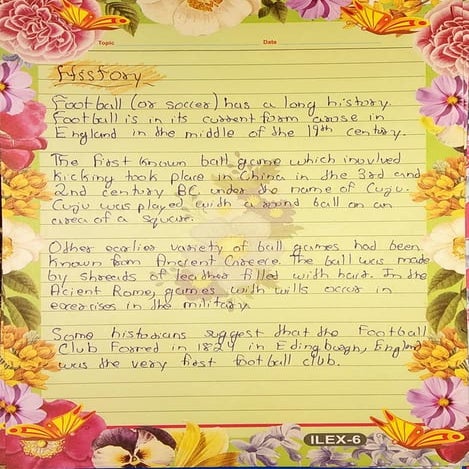 Topic Date
History
Football (or soccer) has a long history.
Football is in its current form arose in
England in the middle of the 19th century.
The first known ball game which inovlved
kicking took place in China in the 3rd and
2nd century BC under the name of Cuju.
Cuju was played with around ball on an
area of a square.
Other earlier variety of ball games had been
known from Ancient Greece. The ball was made
by shreds of leather filled with hair. In the
Acient Rome, games with wills occur in
exercises in the military.
Some historians suggest that the Football
Club Formed in 1824 in Edingburgh, England
was the very first football club.
ILEX-6